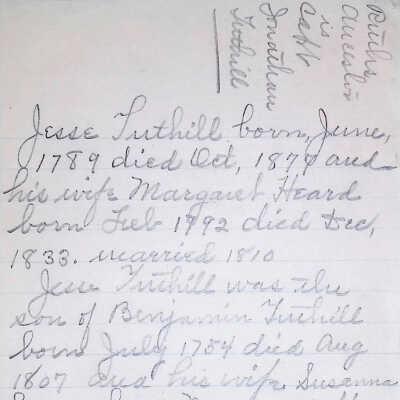 Ruth's
Ancestor
is
Capt
Jonathan
Tuthill
Jesse Tuthill born, June,
1789 died Oct, 1874 and
his wife Margaret Heard
born Feb 1792 died Dec,
1833. married 1810
Jesse Tuthill was the
son of Benjamin Tuthill
born July 1754 died Aug
1807 and his wife Susanna